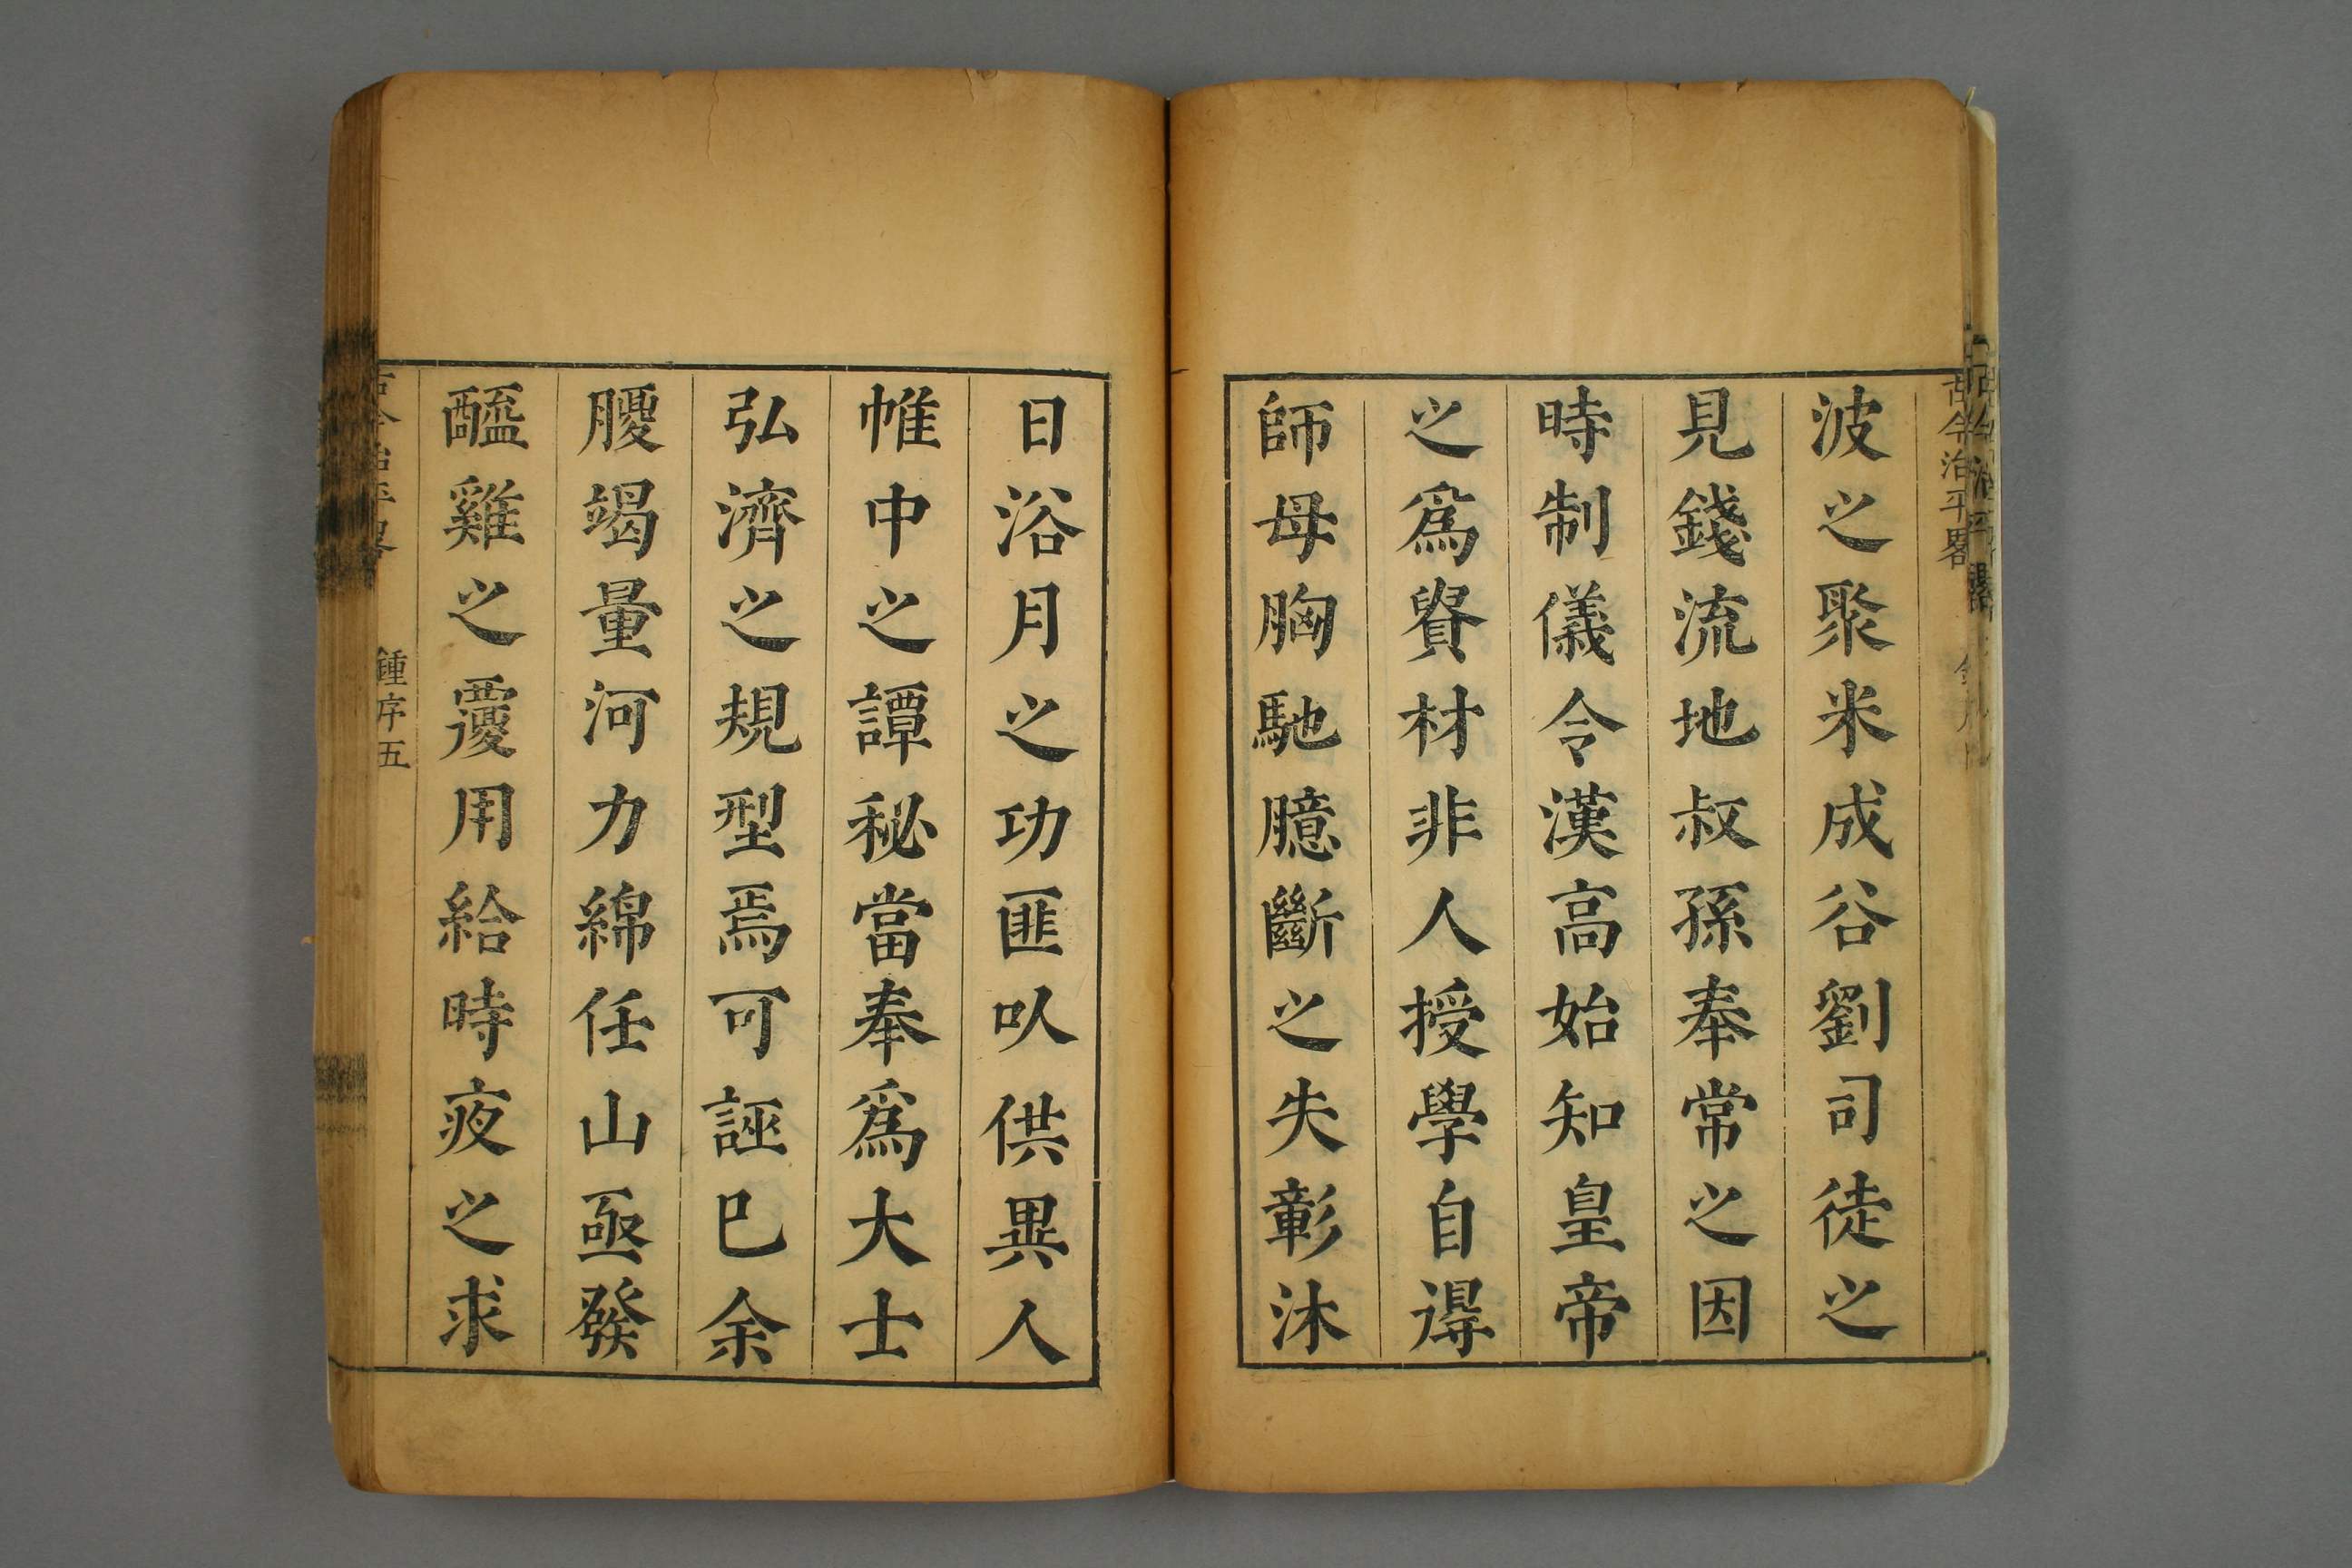 古今治平畧
波之聚米成谷劉司徒之
見錢流地叔孫奉常之因
時制儀令漢高始知皇帝
之爲貴材非人授學自得
師母胸馳臆斷之失彰沐
日浴月之功匪㕥供異人
帷中之譚秘當奉爲大士
弘濟之規型焉可誣巳余
腹竭量河力綿任山亟發
醯雞之覆用給時夜之求
古今治平畧
鍾序五